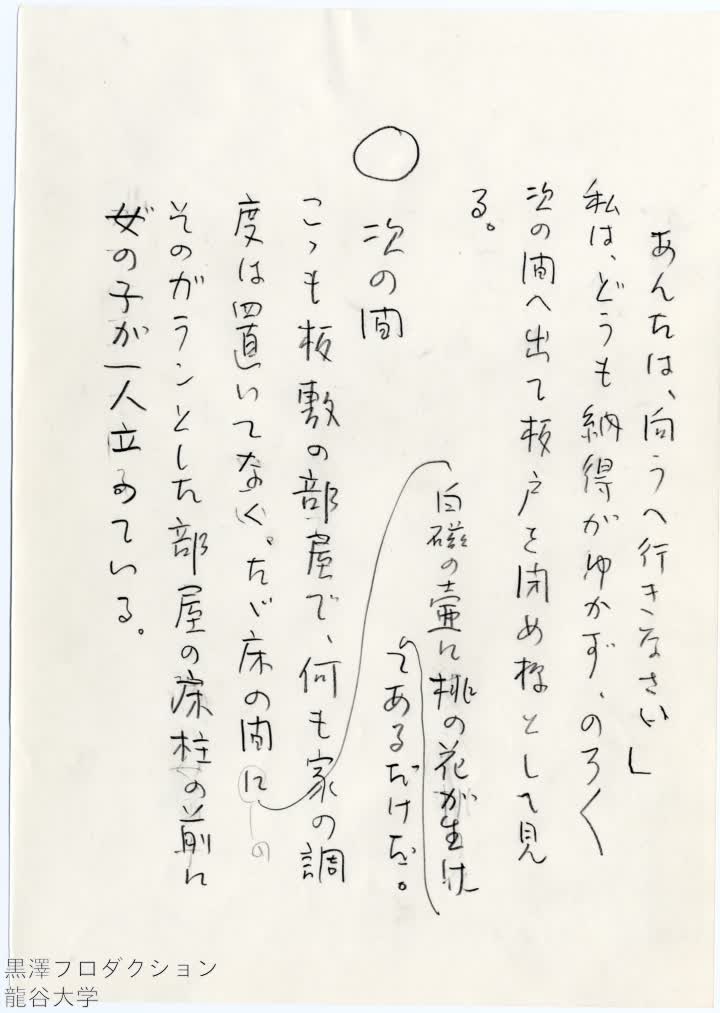 あんたは、向うへ行きなさい」
私は、どうも納得がゆかず、のろ〱
次の間へ出て板戸を閉め様として見
る。
○ 次の間
こゝも板敷の部屋で、何も家の調
度は置いてなく。たゞ床の間に
白磁の壷に桃の花が生け
てあるだけだ。
そのガランとした部屋の床柱の前に
女の子が一人立っている。
黒澤プロダクション
龍谷大学